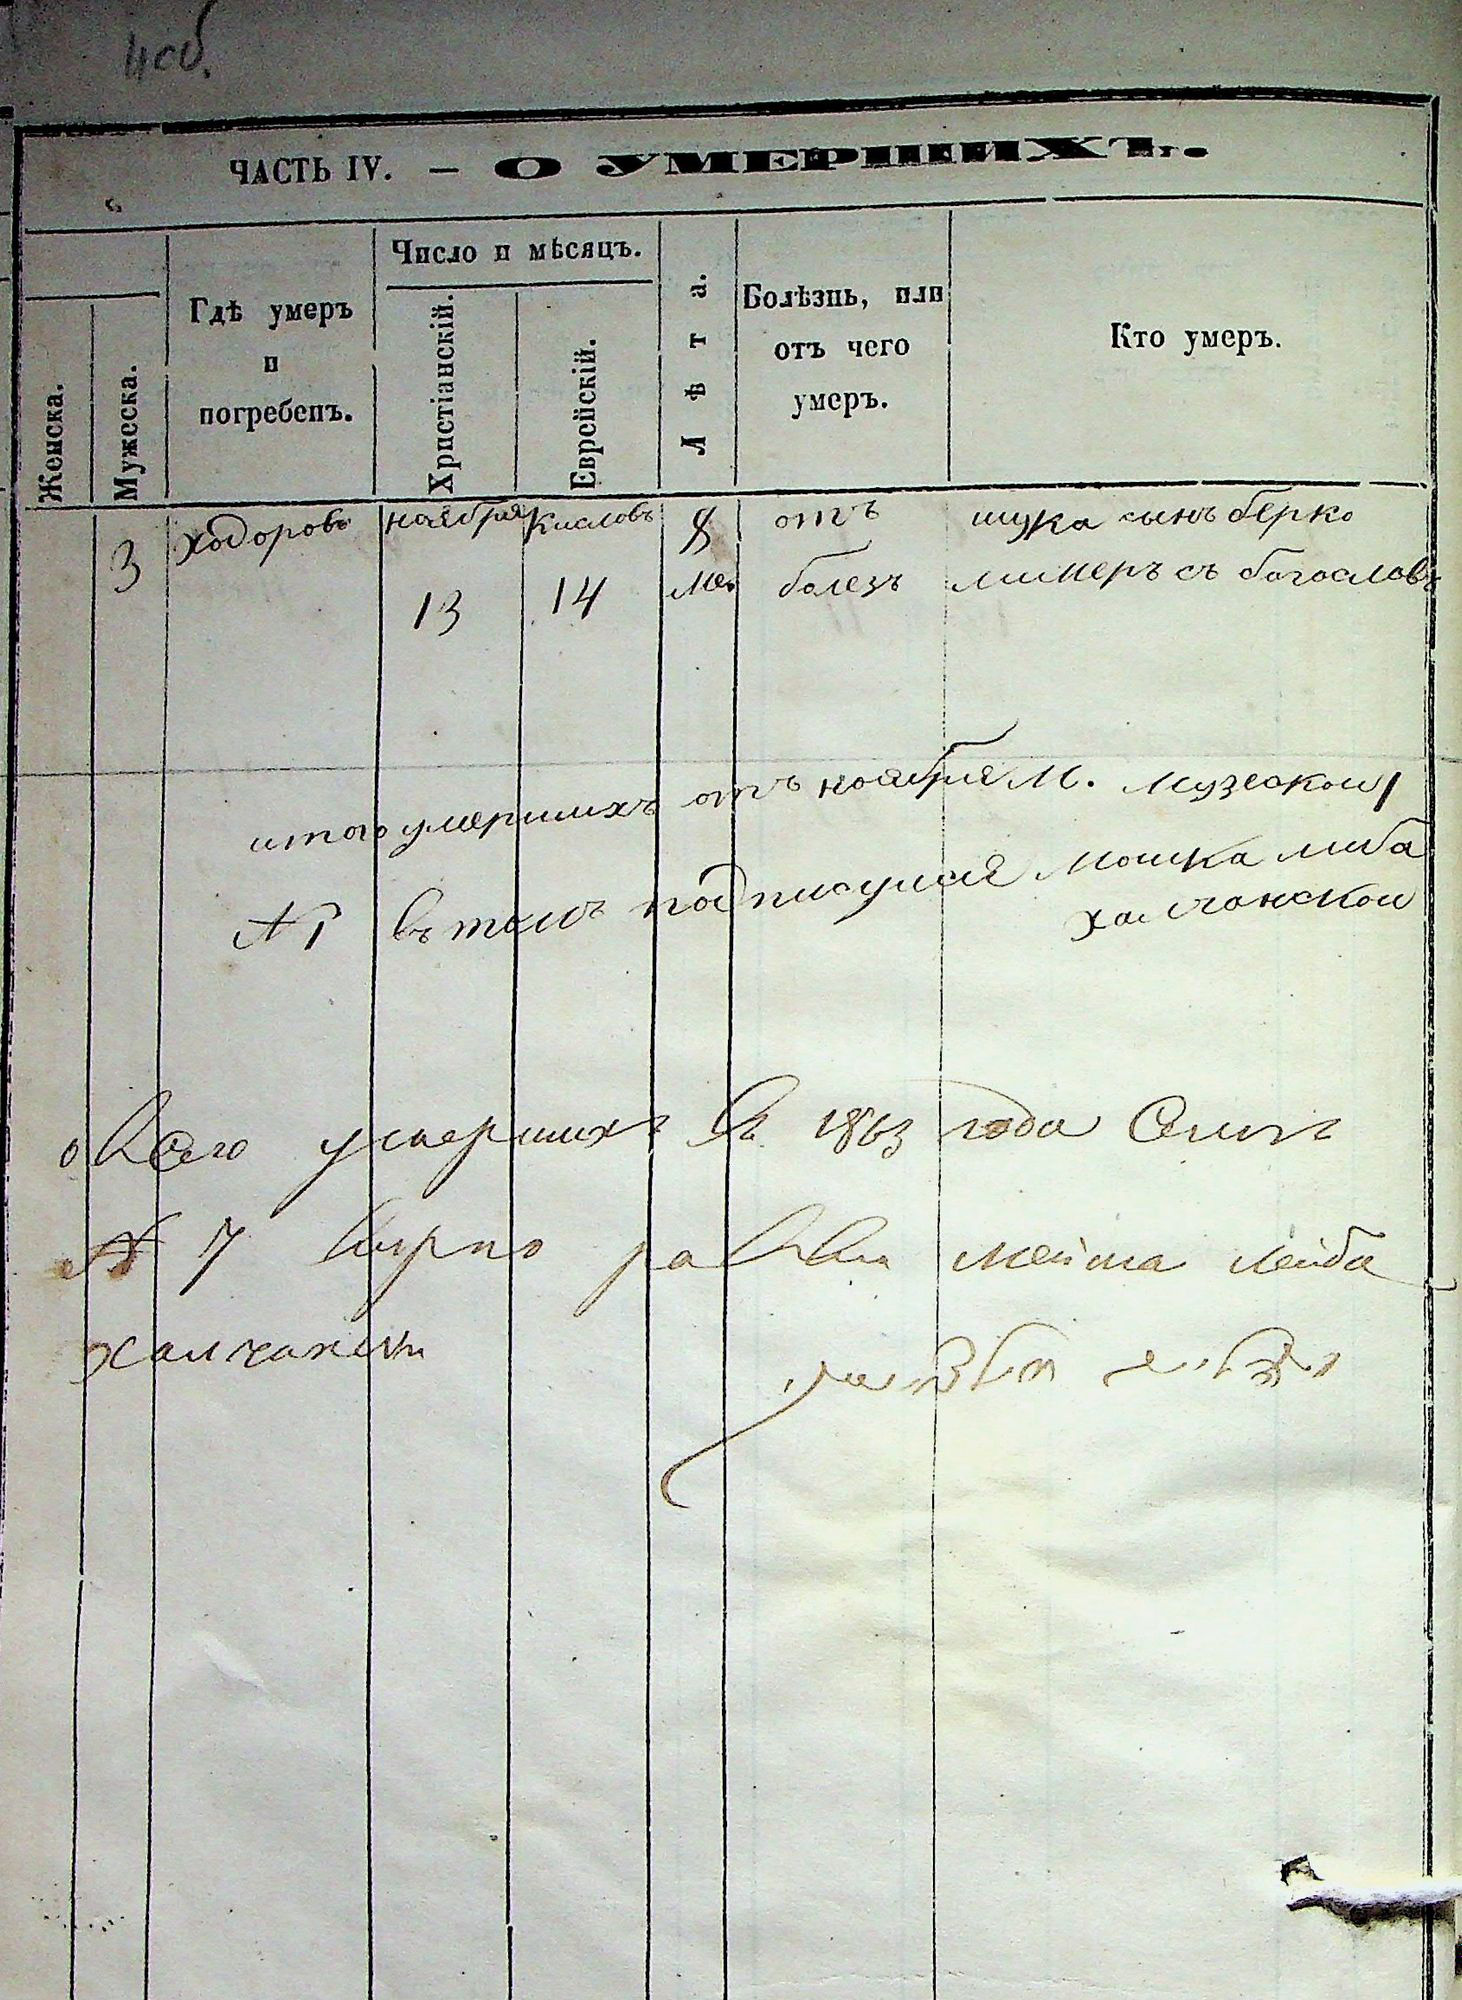 4 об.
ЧАСТЬ IV. — О УМЕРШИХЪ.
Женска.
Мужеска.
Гдѣ умеръ
и
погребенъ.
Число и мѣсяцъ.
Христіанскій.
Еврейскій.
Лѣта.
Болѣзнь, или
отъ чего
умеръ.
Кто умеръ.
3
ходоровъ
ноября
13
Кисловъ
14
8
ме
отъ
болезъ
шука сынъ берко
съ богословъ
итого умершихъ отъ ноября М. музескои
№ 1 въ томъ подписулся Мошка либа
халчанскои
Всего умершихъ въ 1863 года Семь
№ 7 раввин лейба
Халчански